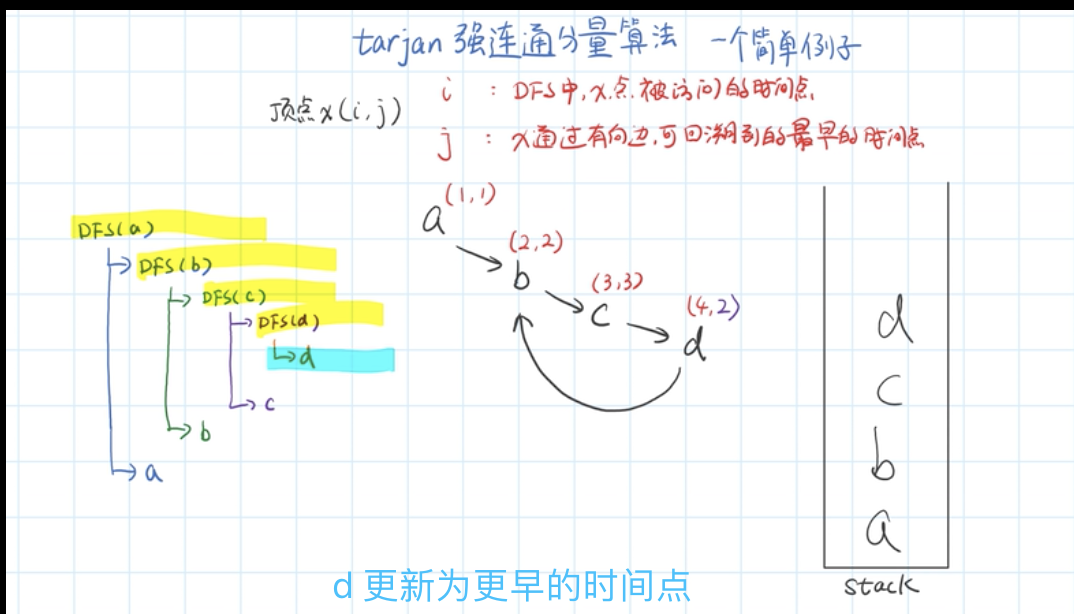 tarjan 强连通分量算法 一个简单例子
顶点 x(i,j)
i : DFS中,x点.被访问的时间点
j : x通过有向边,可回溯到的最早的时间点
DFS(a)
DFS(b)
DFS(c)
DFS(d)
d
c
b
a
a (1,1)
b (2,2)
c (3,3)
d (4,2)
d
c
b
a
stack
d 更新为更早的时间点